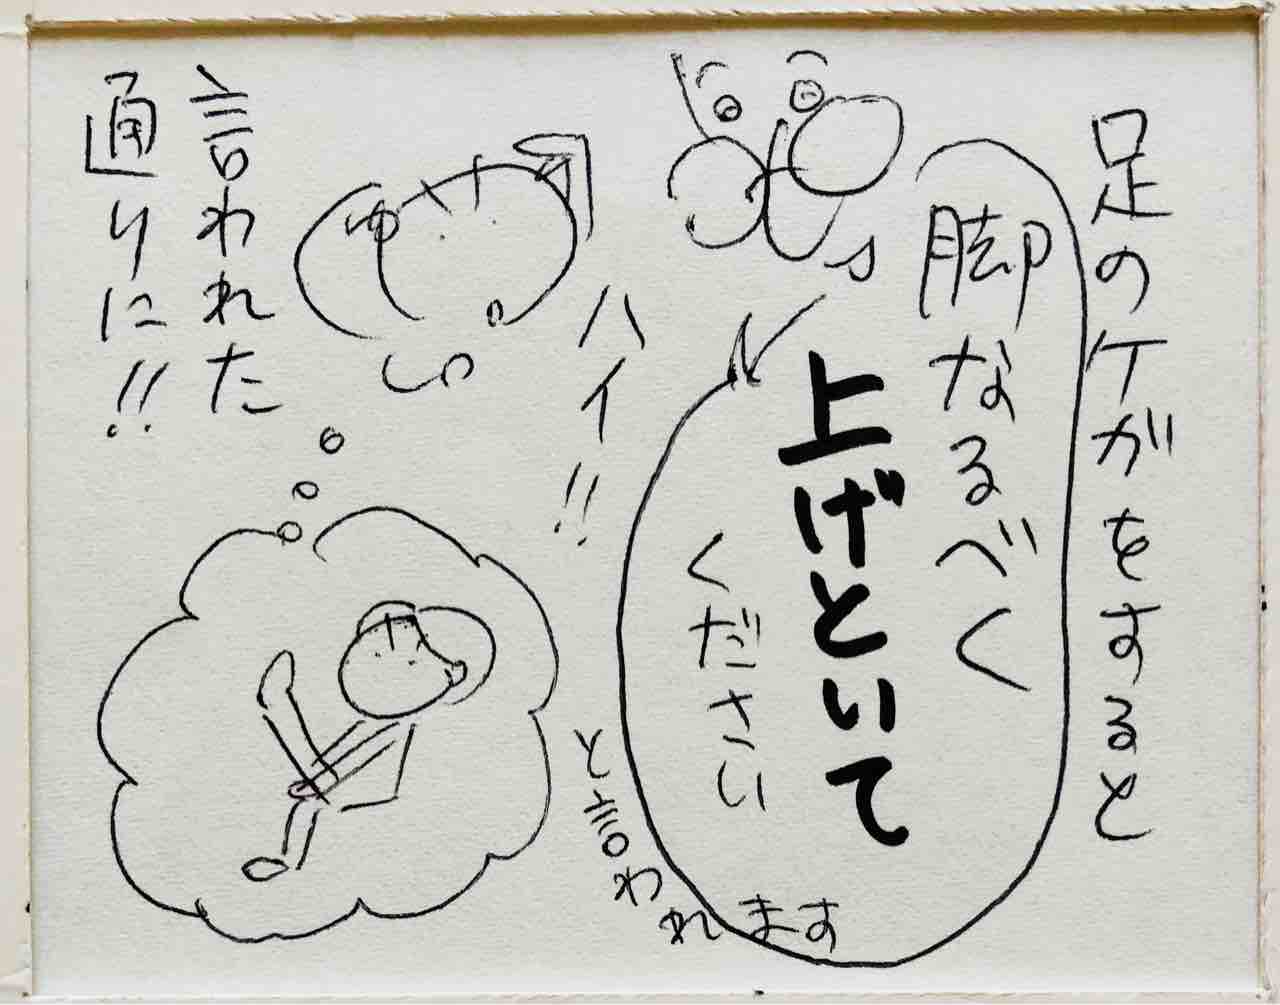 足のケガをすると
脚なるべく
上げといて
ください
と言われます
ハイ!!
言われた
通りに!!